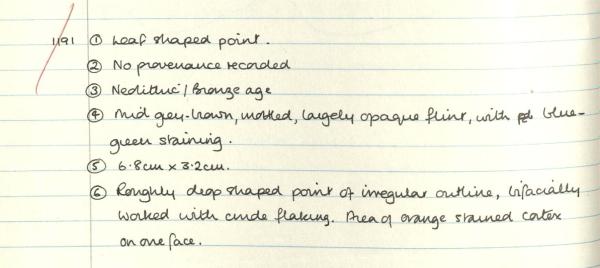 1191 ① Leaf shaped point.
② No provenance recorded
③ Neolithic / Bronze age
④ Mid grey-brown, mottled, largely opaque flint, with blue-
green staining.
⑤ 6.8cm x 3.2cm.
⑥ Roughly drop shaped point of irregular outline, bifacially
worked with crude flaking. Area of orange stained cortex
on one face.